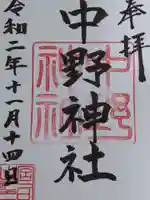 奉拝
中野神社
令和二年十一月十四日